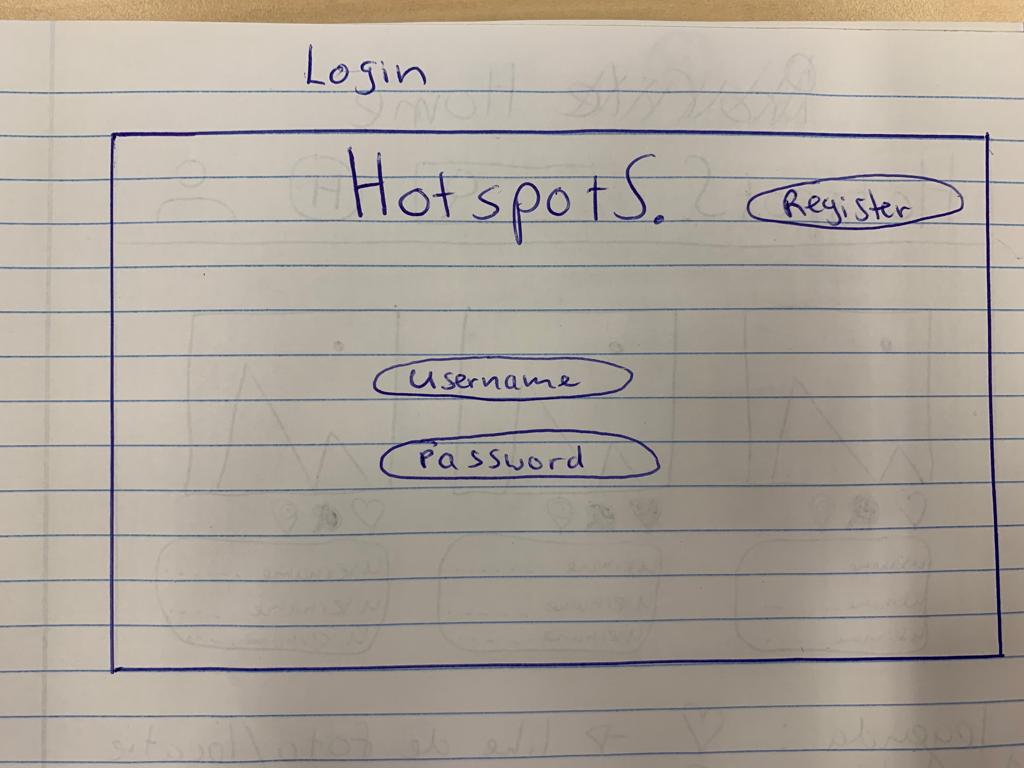 Login
HotspotS.
Register
Username
Password